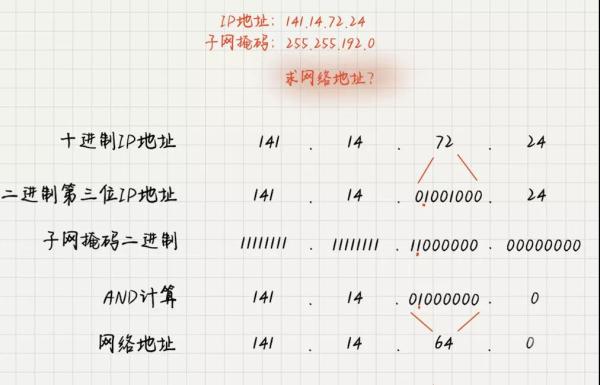 IP地址: 141.14.72.24
子网掩码: 255.255.192.0
求网络地址?
十进制IP地址 141 . 14 . 72 . 24
二进制第三位IP地址 141 . 14 . 01001000 . 24
子网掩码二进制 11111111 . 11111111 . 11000000 . 00000000
AND计算 141 . 14 . 01000000 . 0
网络地址 141 . 14 . 64 . 0